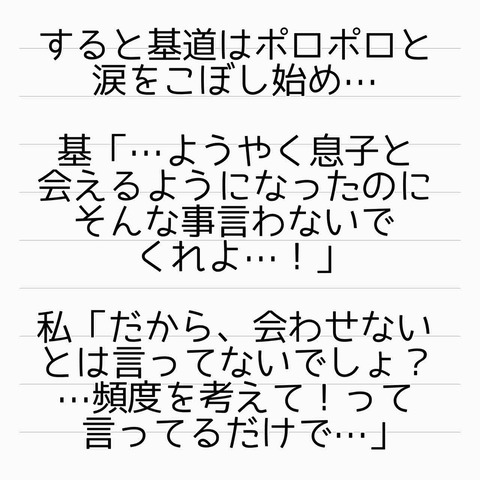 すると基道はポロポロと
涙をこぼし始め…
基「…ようやく息子と
会えるようになったのに
そんな事言わないで
くれよ…！」
私「だから、会わせない
とは言ってないでしょ？
…頻度を考えて！って
言ってるだけで…」